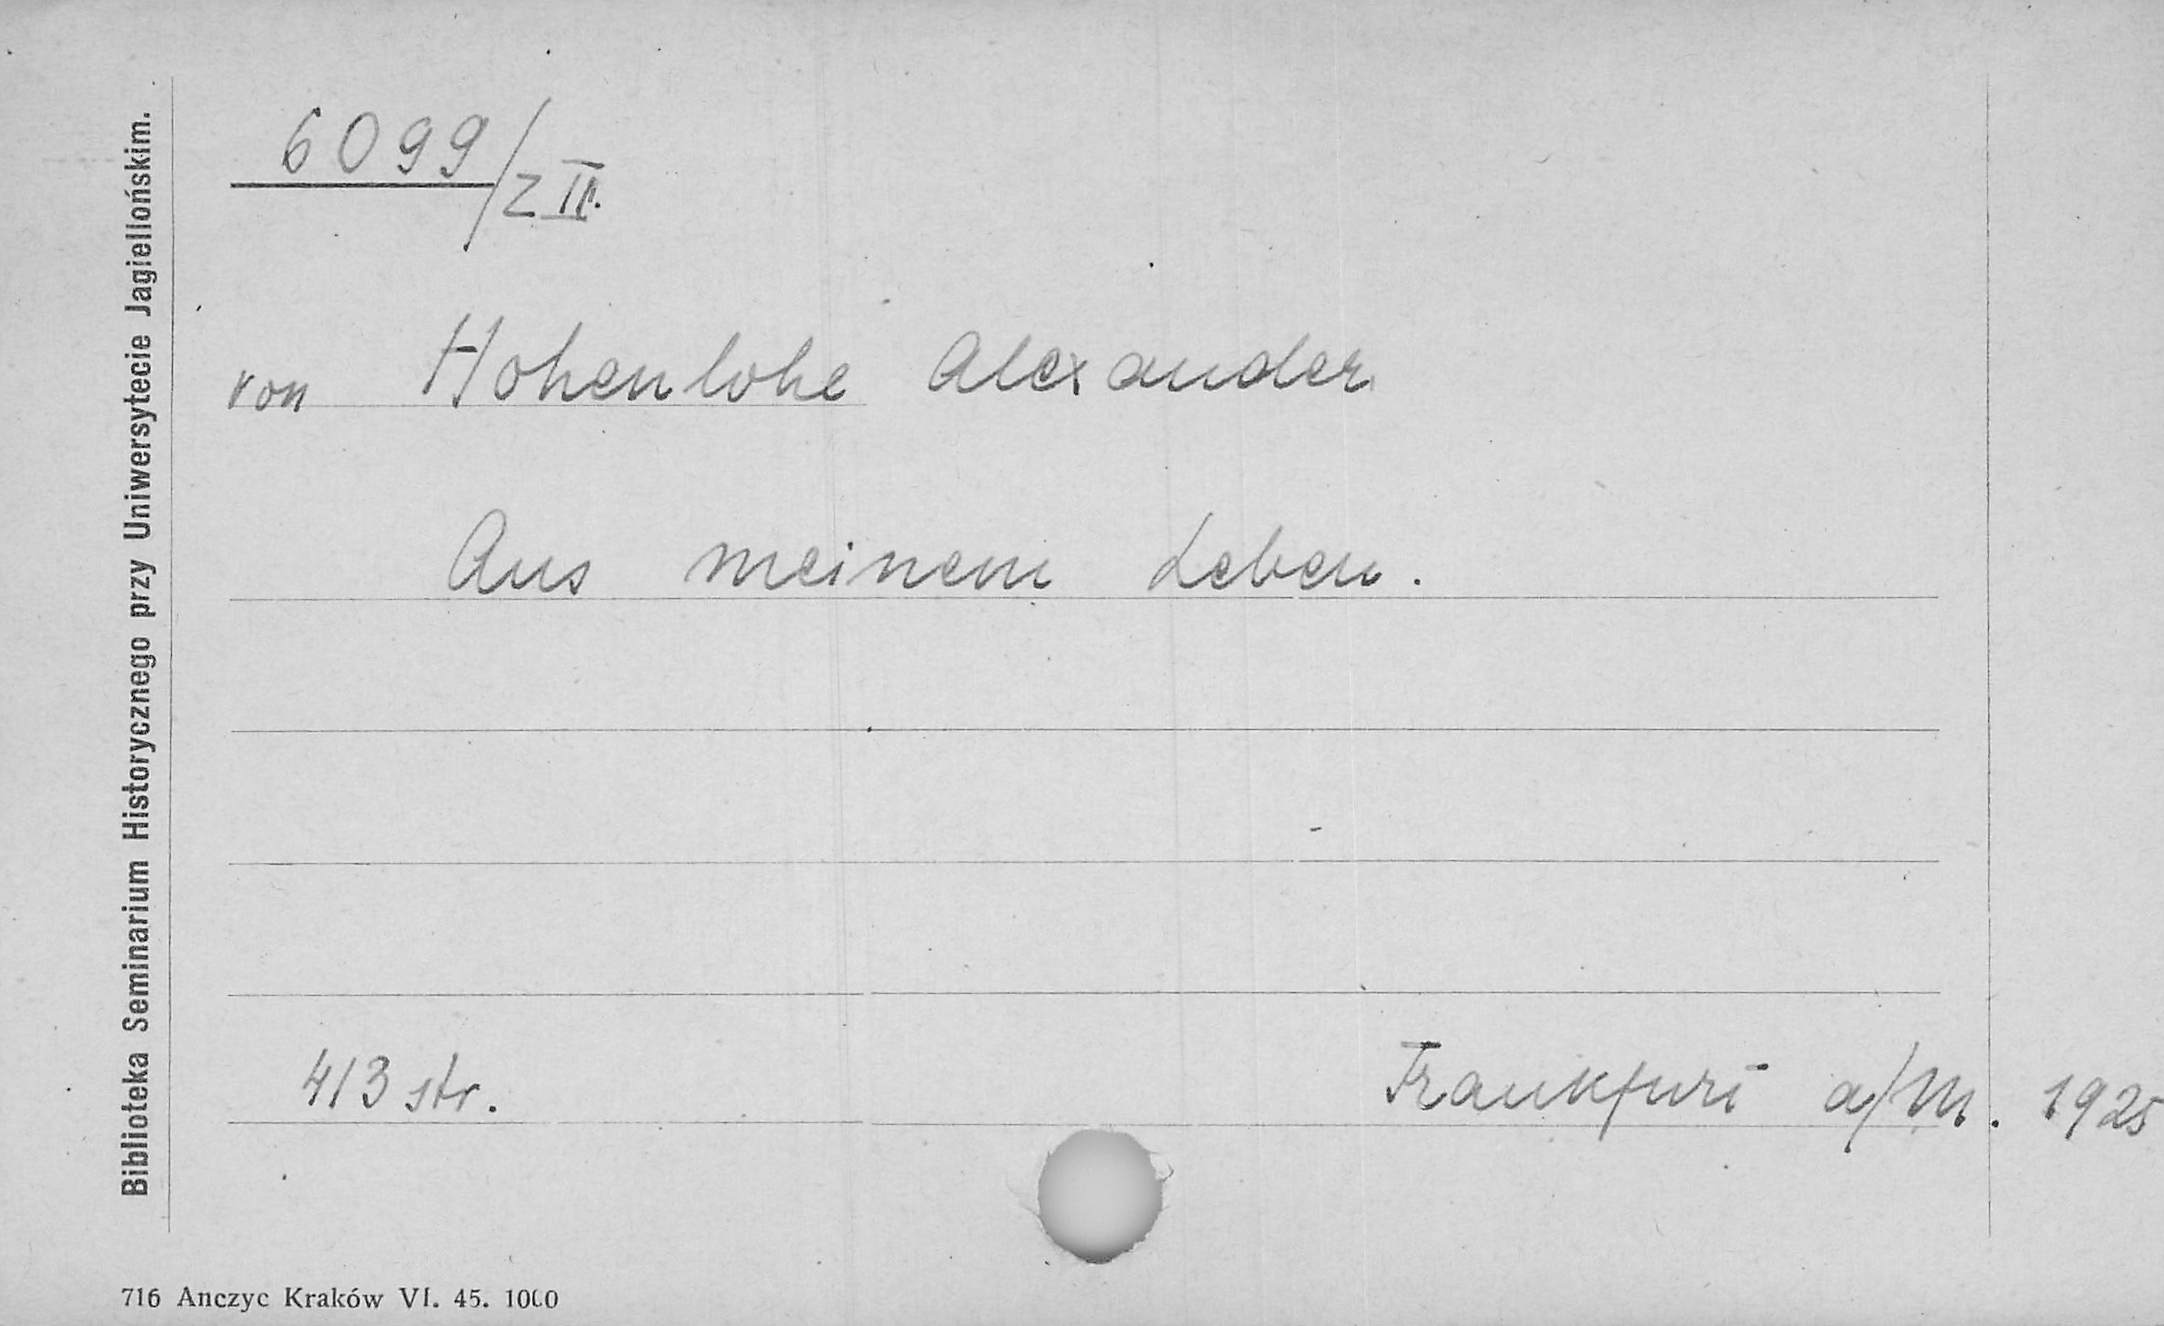 6099/Z II.
von Hohenlohe Alexander
Aus meinem Leben.
413 str.
Frankfurt a/M. 1925
Biblioteka Seminarium Historycznego przy Uniwersytecie Jagiellońskim.
716 Anczyc Kraków VI. 45. 1000